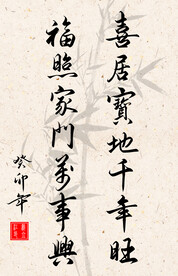 喜居寶地千年旺
福照家門萬事興
癸卯年